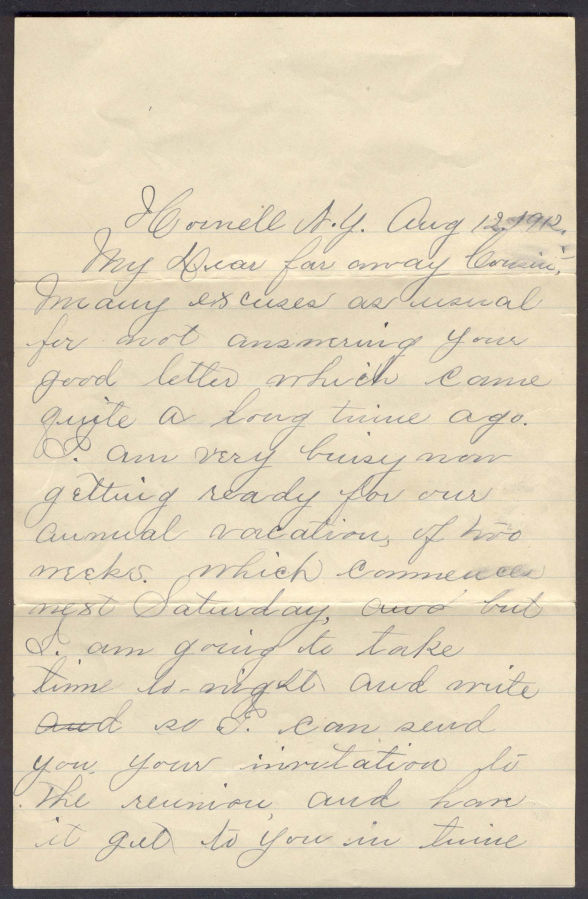 Hornell N.Y. Aug 12, 1912.
My Dear far away Cousin;
Many excuses as usual
for not answering your
good letter which came
quite a long time ago.
I. am very buisy now
getting ready for our
annual vacation, of two
weeks. which commences
next Saturday, and but
I. am going to take
time to-night and write
and so I. can send
you your invitation to
the reunion, and have
it get to you in time